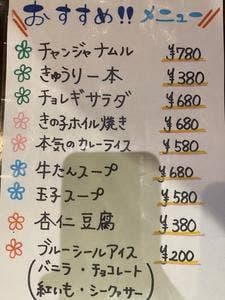 おすすめ!! メニュー
チャンジャナムル ¥780
きゅうり一本 ¥380
チョレギサラダ ¥680
きの子ホイル焼き ¥680
本気のカレーライス ¥580
牛たんスープ ¥680
玉子スープ ¥580
杏仁豆腐 ¥380
ブルーシールアイス ¥200
(バニラ・チョコレート
紅いも・シークヮサー)